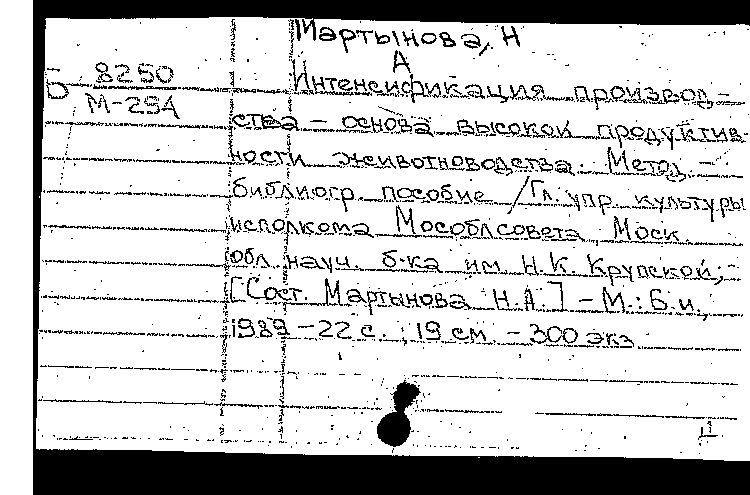 Мартынова, Н
А
Б 8250
М-294
Интенсификация производ-
ства - основа высокой продуктив-
ности животноводства. Метод.-
библиогр. пособие / Гл. упр. культуры
исполкома Мособлсовета, Моск.
обл. науч. б-ка им. Н.К. Крупской;
[Сост. Мартынова Н.А.] - М.: Б.и.,
1989 - 22 с.; 19 см. - 300 экз.